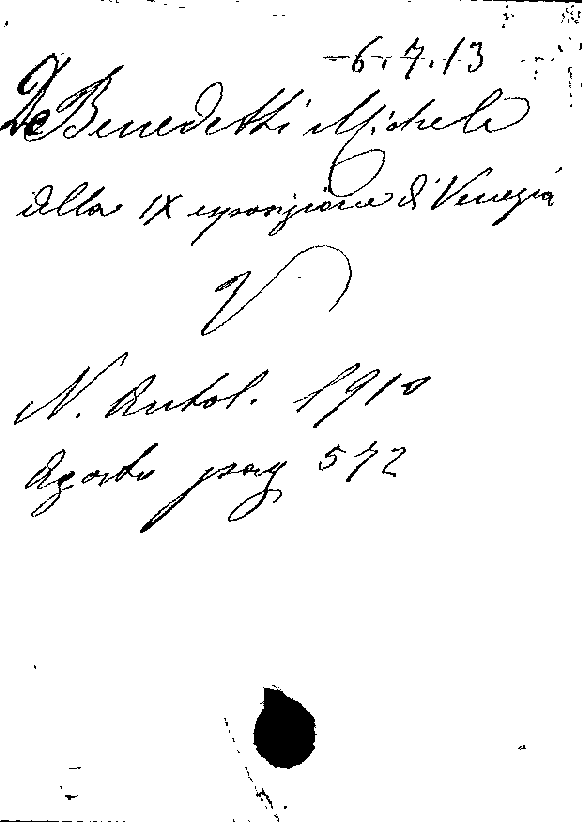 6.7.13
De Benedetti Michele
della IX esposizione di Venezia
V
N. Antol. 1910
Agosto pag 572